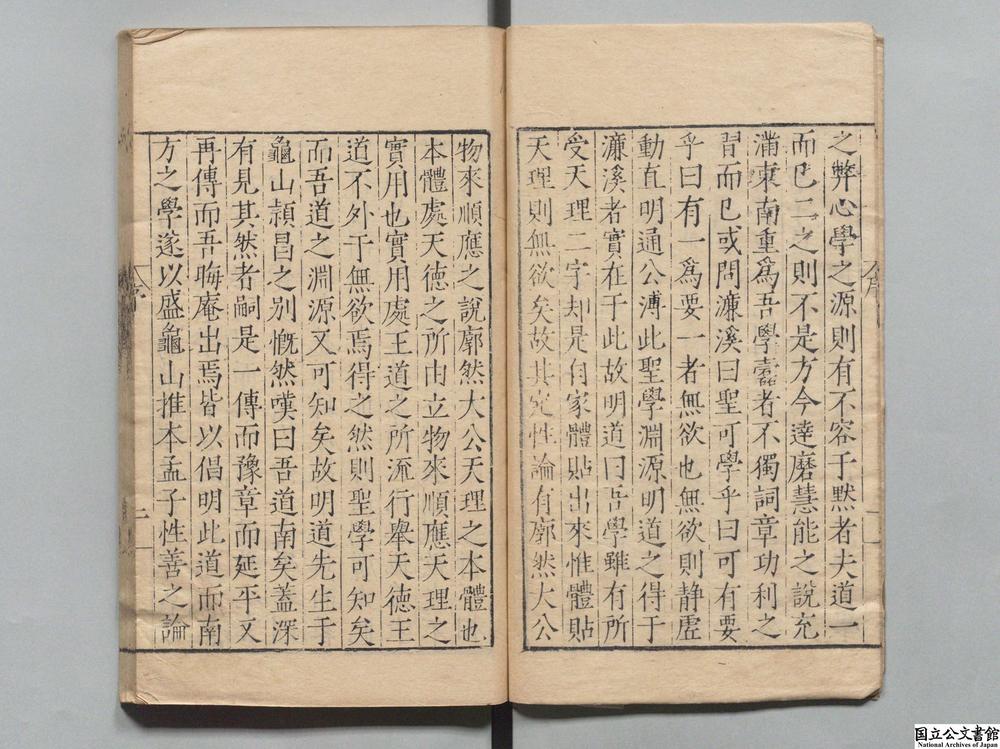 之弊心學之源則有不容于默者夫道一
而已二之則不是方今達磨慧能之說充
滿東南重爲吾學蠹者不獨詞章功利之
習而已或問濂溪曰聖可學乎曰可有要
乎曰有一爲要一者無欲也無欲則静虚
動直明通公溥此聖學淵源明道之得于
濂溪者實在于此故明道曰吾學雖有所
受天理二字却是自家體貼出來惟體貼
天理則無欲矣故其定性論有廓然大公
物來順應之說廓然大公天理之本體也
本體處天德之所由立物來順應天理之
實用也實用處王道之所流行舉天德王
道不外于無欲焉得之然則聖學可知矣
而吾道之淵源又可知矣故明道先生于
龜山頴昌之别慨然嘆曰吾道南矣蓋深
有見其然者嗣是一傳而豫章而延平又
再傳而吾晦庵出焉皆以倡明此道而南
方之學遂以盛龜山推本孟子性善之論
国立公文書館
National Archives of Japan